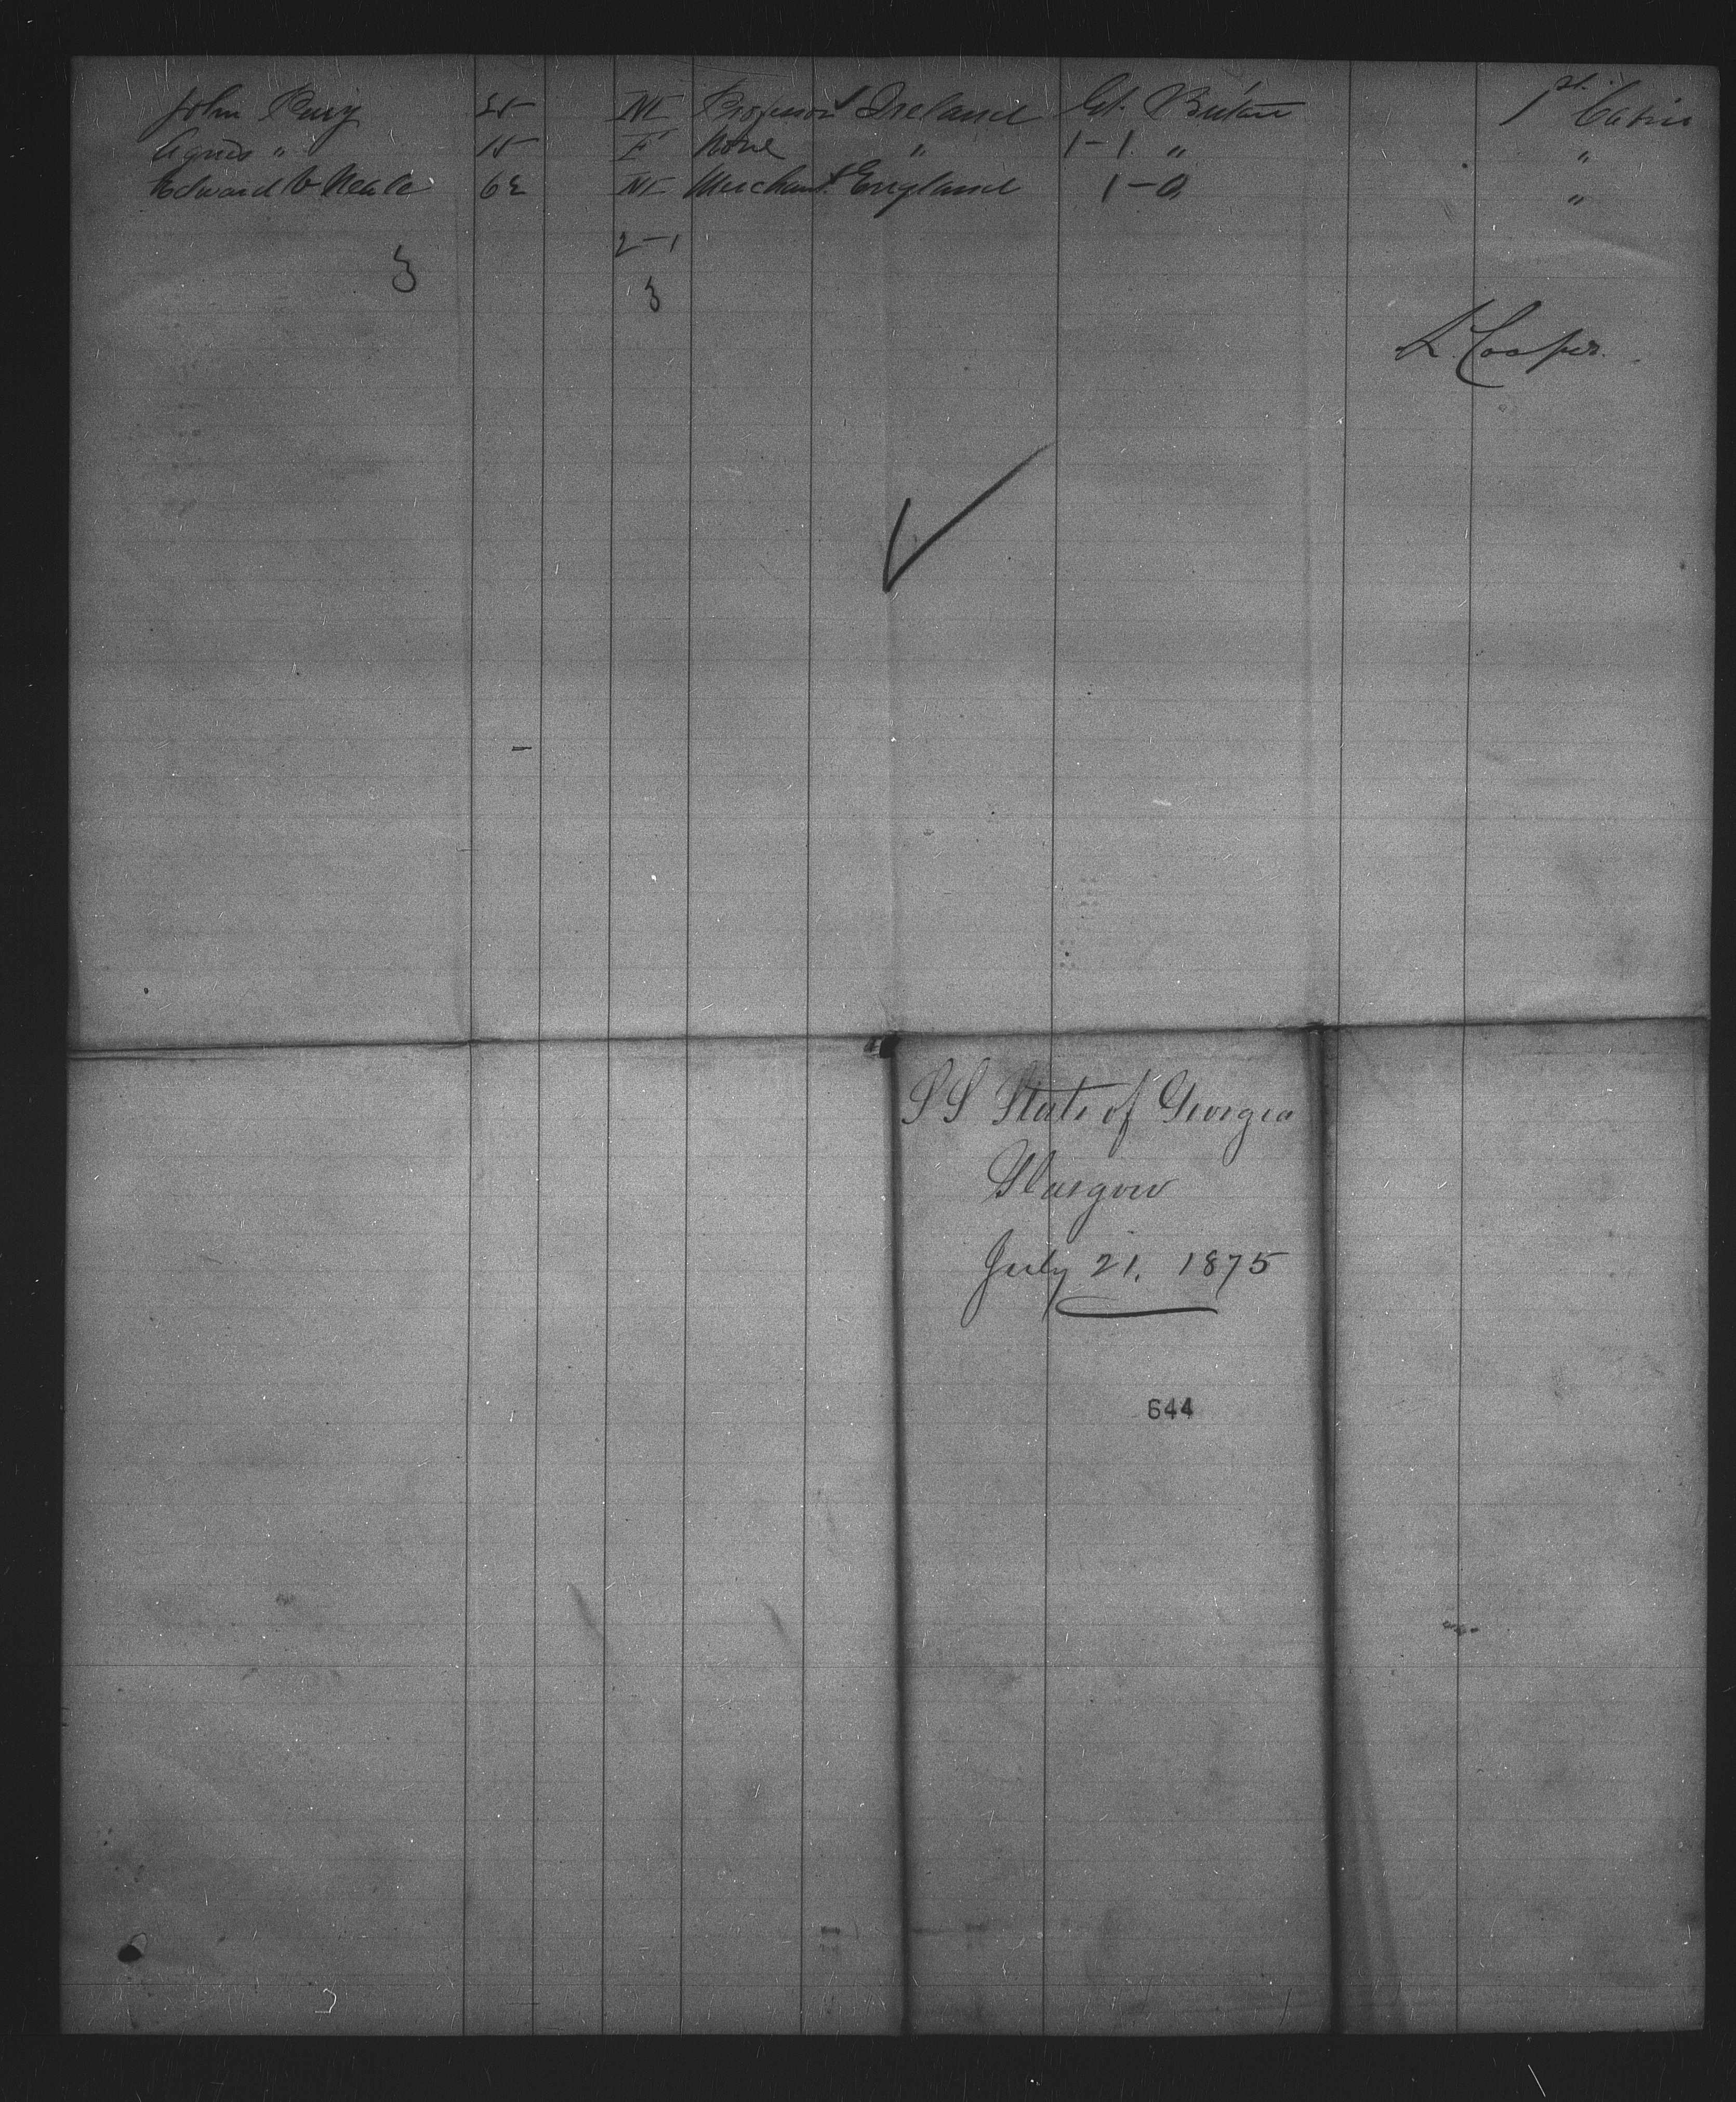 John 25 M Professor Ireland Gt. Britain 1st Cabin
Agnes " 15 F None " 1-1 " "
Edward Neale 62 M Merchant England 1-0 "
2-1
3 3
Cooper.
SS State of Georgia
Glasgow
July 21, 1875
644